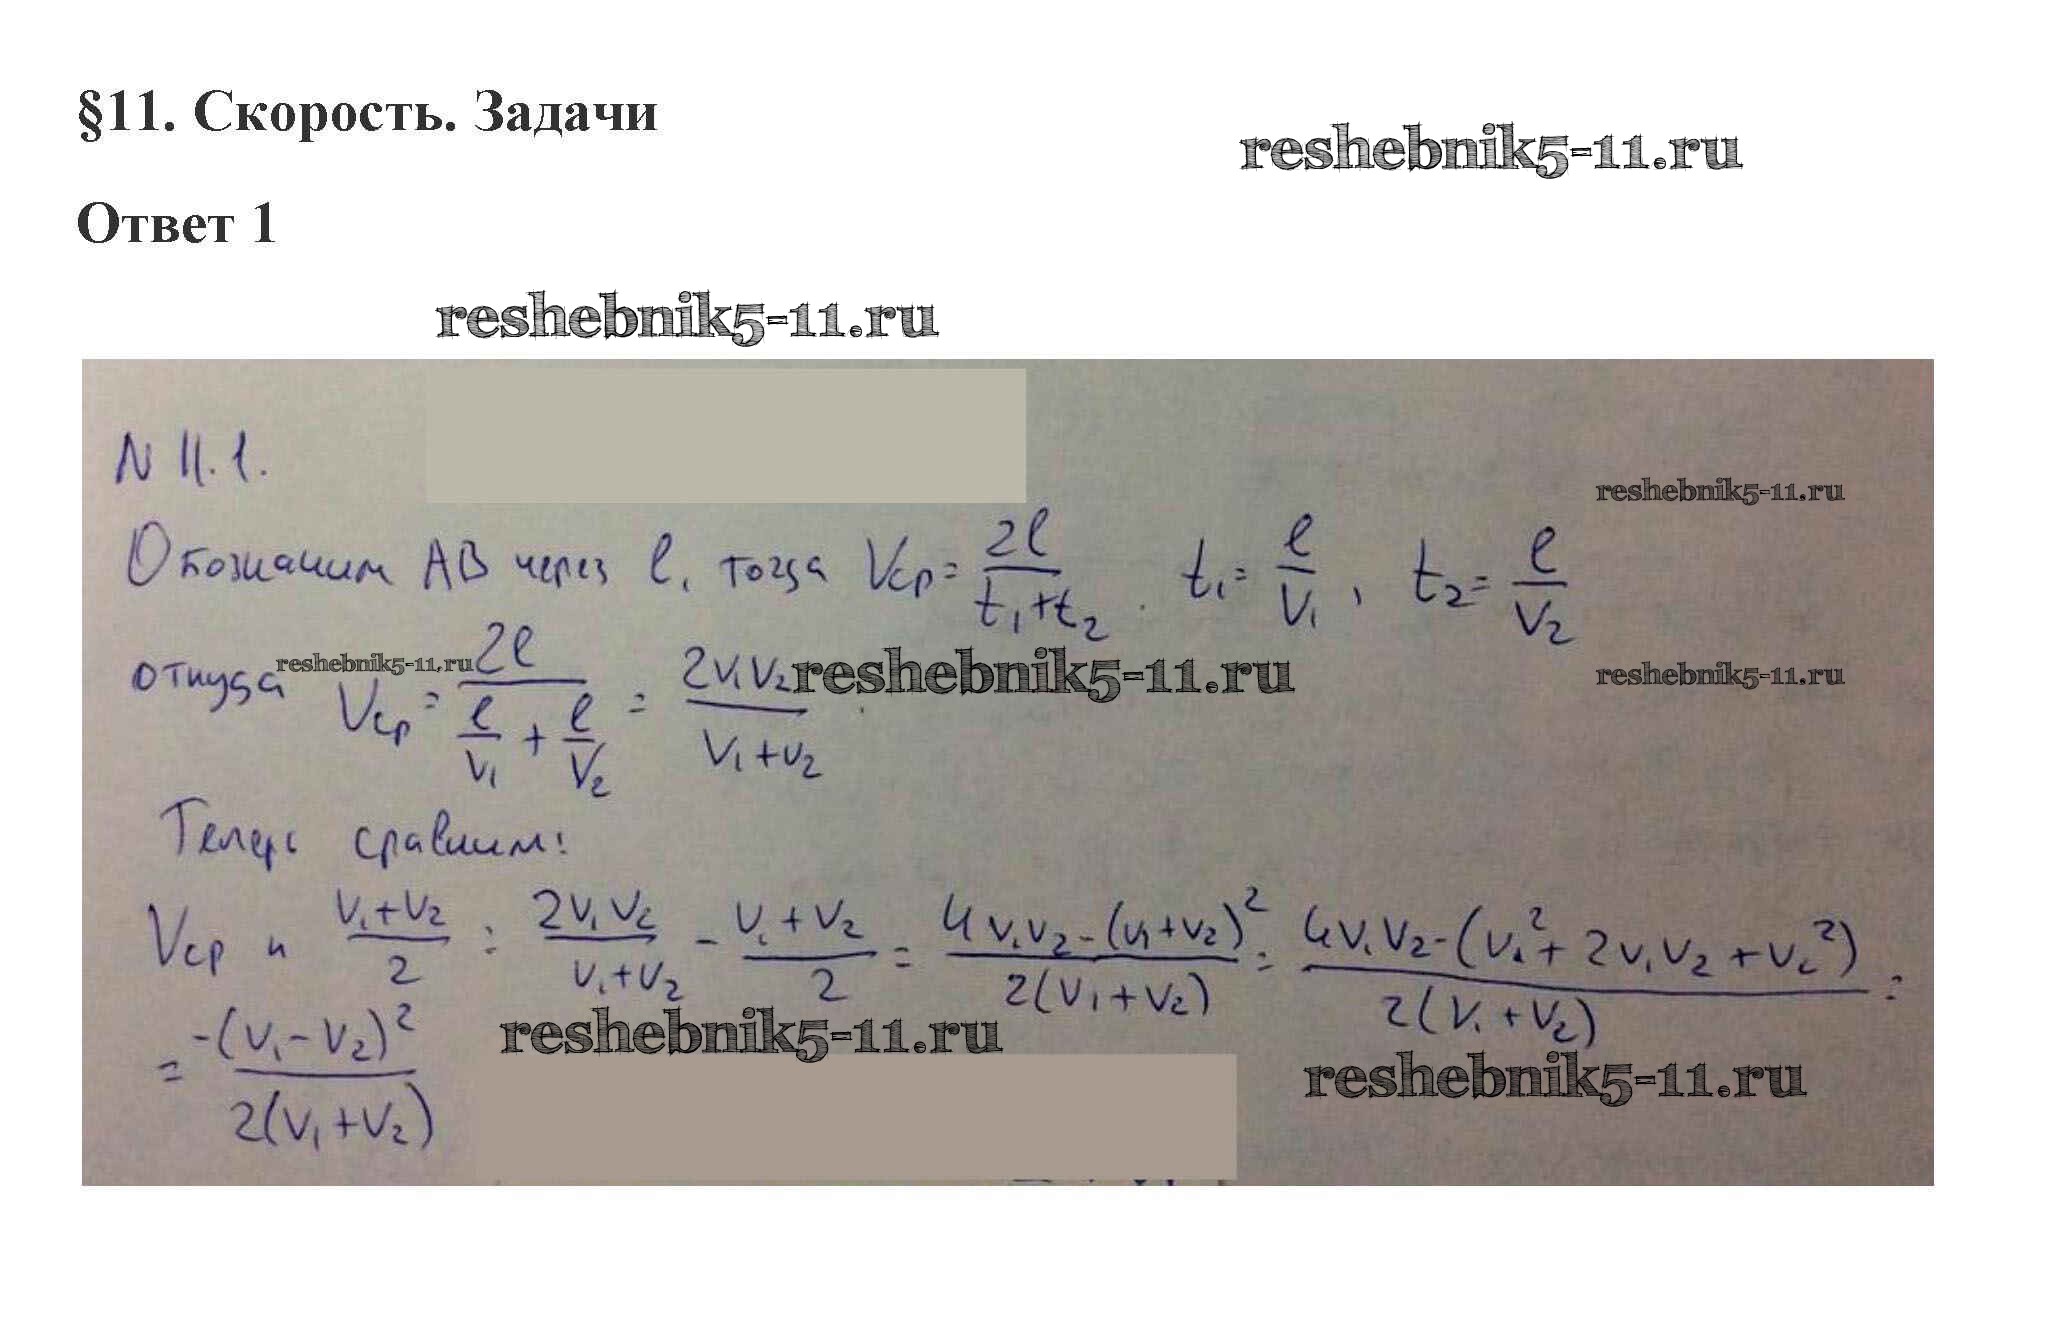 §11. Скорость. Задачи
reshebnik5-11.ru
Ответ 1
reshebnik5-11.ru
N 11.1.
reshebnik5-11.ru
Обозначим AB через l, тогда Vср = 2l / (t₁+t₂). t₁ = l / V₁, t₂ = l / V₂
откуда Vср = 2l / (l/V₁ + l/V₂) = 2V₁V₂ / (V₁+V₂).
reshebnik5-11.ru
reshebnik5-11.ru
reshebnik5-11.ru
Теперь сравним:
Vср и (V₁+V₂)/2 : 2V₁V₂/(V₁+V₂) - (V₁+V₂)/2 = (4V₁V₂-(V₁+V₂)²)/(2(V₁+V₂)) = (4V₁V₂-(V₁²+2V₁V₂+V₂²))/(2(V₁+V₂)) =
= -(V₁-V₂)²/(2(V₁+V₂))
reshebnik5-11.ru
reshebnik5-11.ru